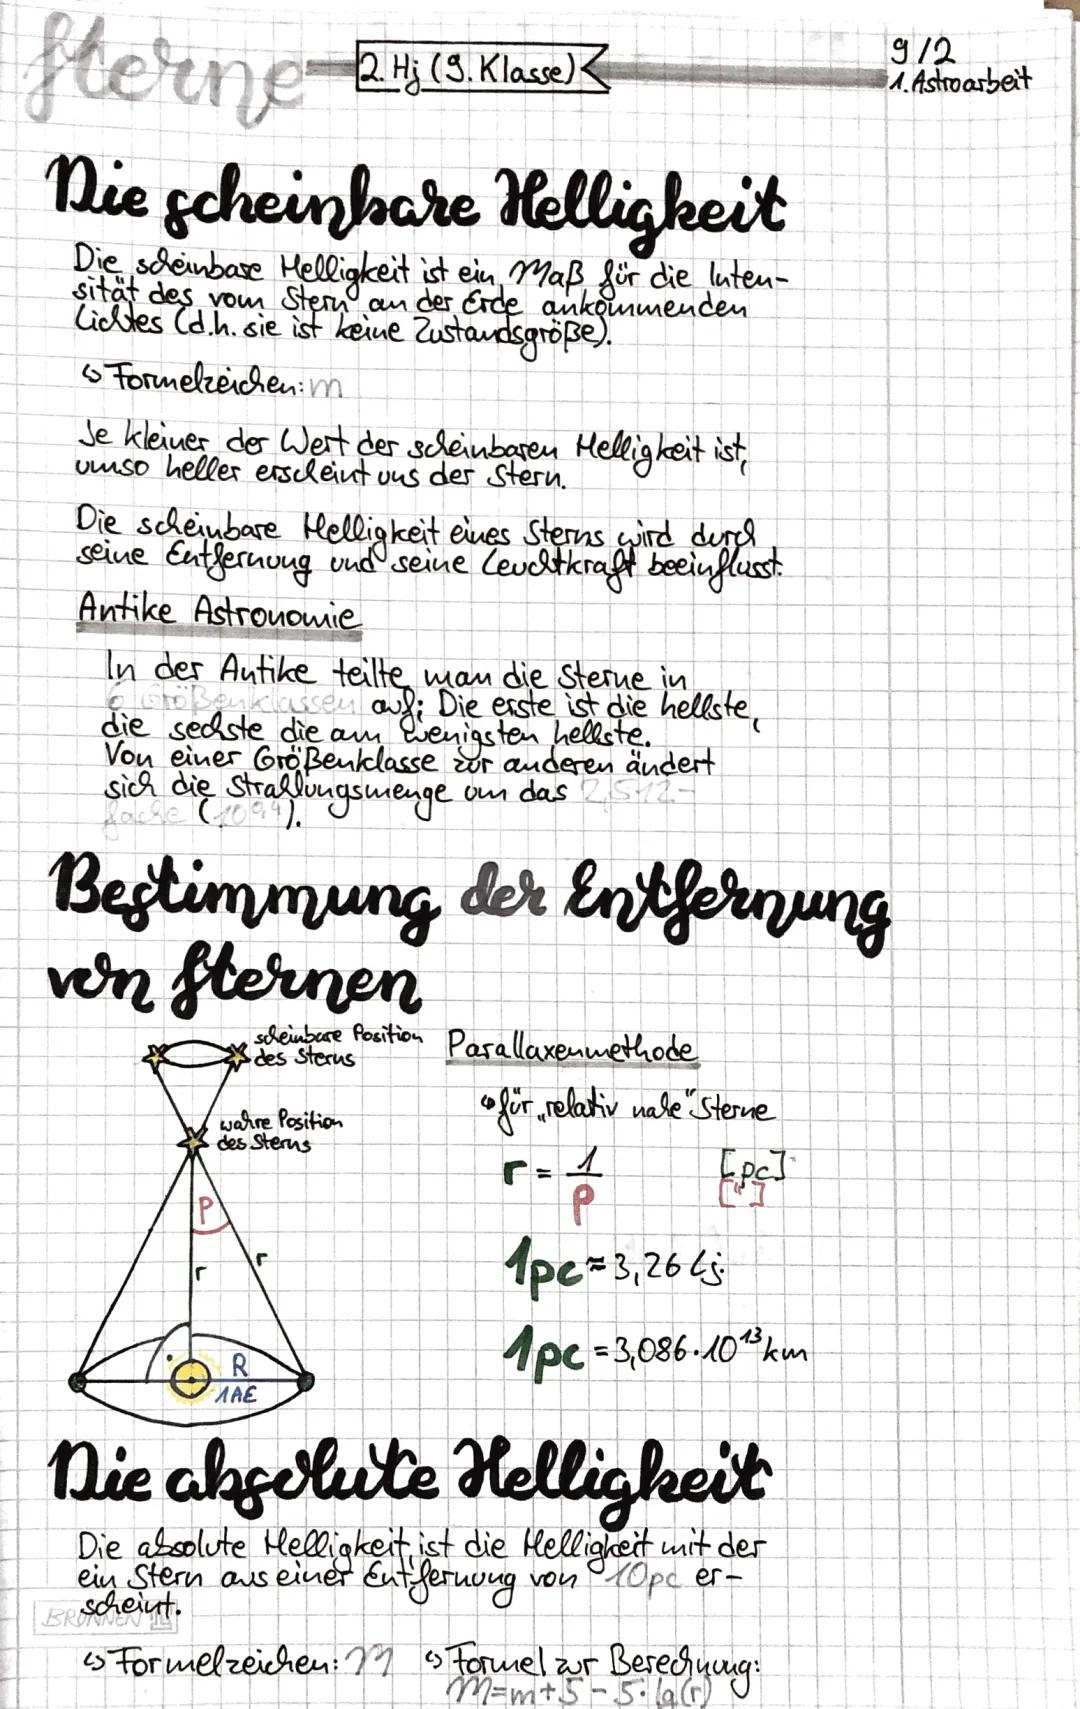 Sterne
2. Hj (9. Klasse)
9/2
1. Astroarbeit
Die scheinbare Helligkeit
Die scheinbare Helligkeit ist ein Maß für die Inten-
sität des vom Stern an der Erde ankommenden
Lichtes (d.h. sie ist keine Zustandsgröße).
↳ Formelzeichen: m
Je kleiner der Wert der scheinbaren Helligkeit ist,
umso heller erscheint uns der Stern.
Die scheinbare Helligkeit eines Sterns wird durch
seine Entfernung und seine Leuchtkraft beeinflusst.
Antike Astronomie
In der Antike teilte man die Sterne in
6 Größenklassen auf; Die erste ist die hellste,
die sechste die am wenigsten hellste.
Von einer Größenklasse zur anderen ändert
sich die Strahlungsmenge um das 2,512-
fache (10^0,4).
Bestimmung der Entfernung
von Sternen
scheinbare Position
des Sterns
wahre Position
des Sterns
P
r
r
R
1AE
Parallaxenmethode
↳ für „relativ nahe" Sterne
r = 1/P [pc] ["]
1pc ≈ 3,26 Lj.
1pc = 3,086·10^13 km
Die absolute Helligkeit
Die absolute Helligkeit ist die Helligkeit mit der
ein Stern aus einer Entfernung von 10pc er-
scheint.
BRUNNEN
↳ Formelzeichen: M
↳ Formel zur Berechnung:
M=m+5-5·lg(r)